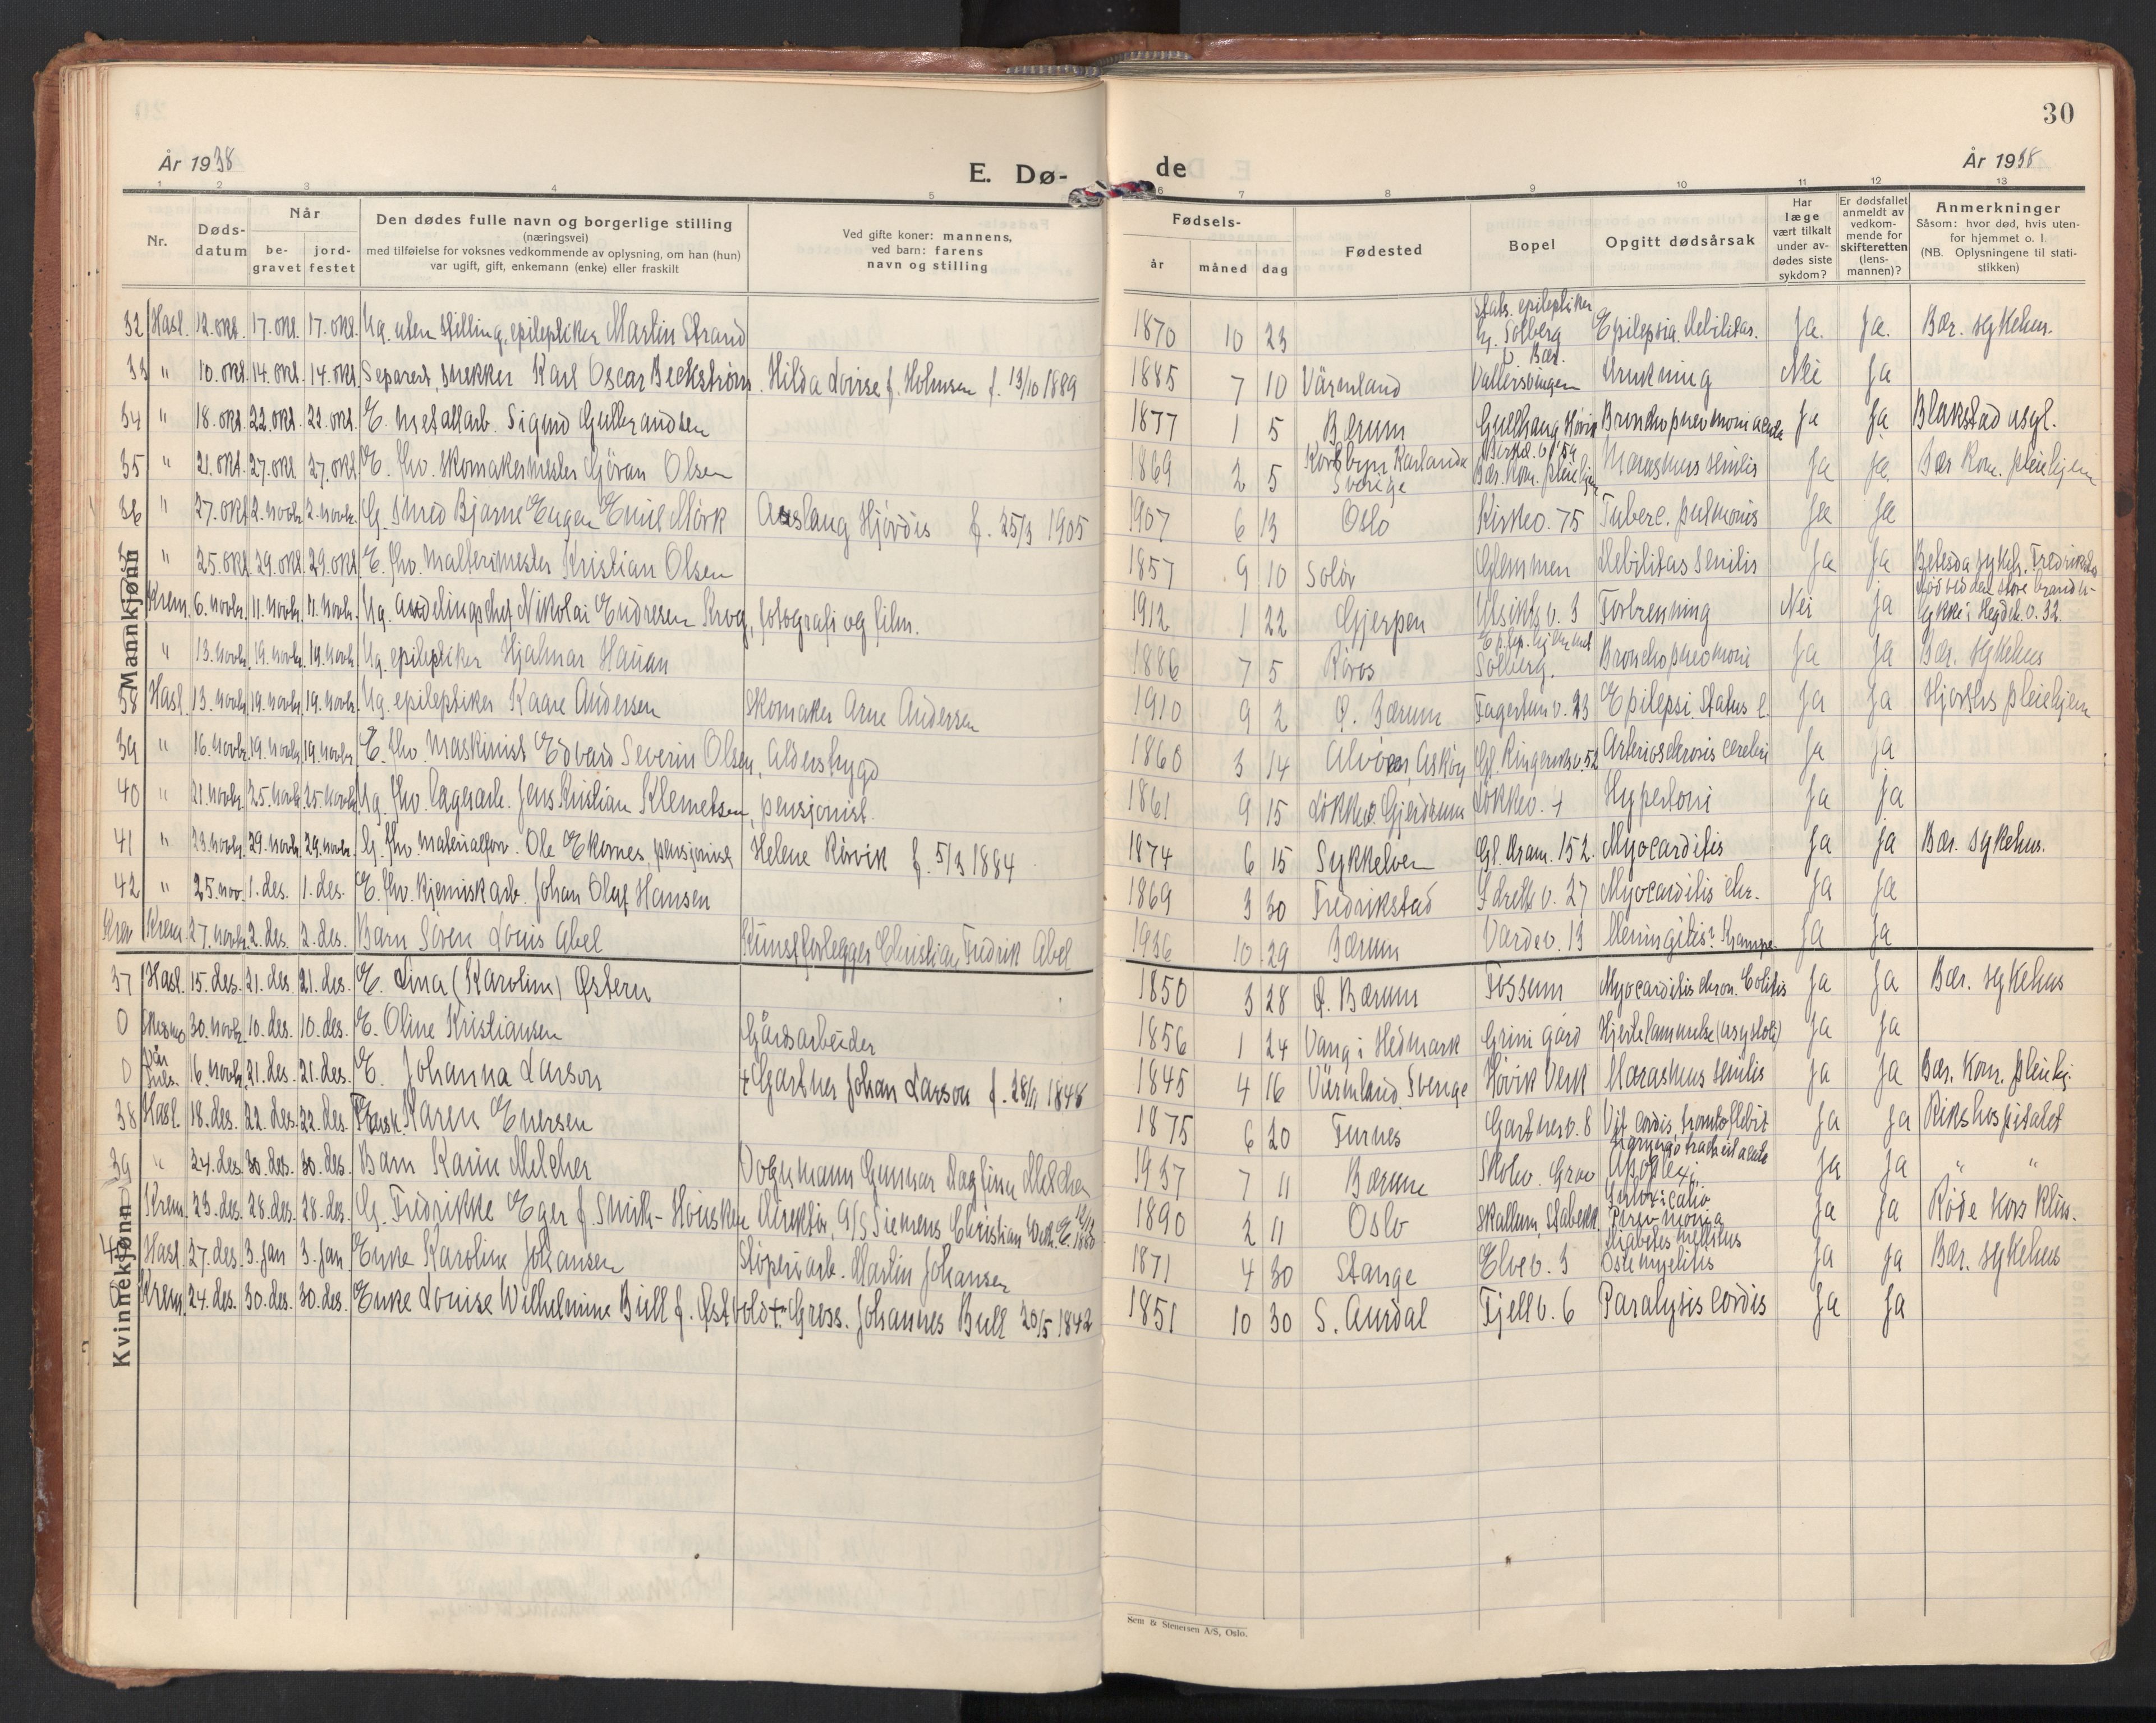 30
År 1938
E. Dø-
de
År 1938
1 2 3 4 5 6 7 8 9 10 11 12 13
Nr.
Døds-
datum
Når
be-
gravet
jord-
festet
Den dødes fulle navn og borgerlige stilling
(næringsvei)
med tilføielse for voksnes vedkommende av oplysning, om han (hun)
var ugift, gift, enkemann (enke) eller fraskilt
Ved gifte koner: mannens,
ved barn: farens
navn og stilling
Fødsels-
år
måned
dag
Fødested
Bopel
Opgitt dødsårsak
Har
læge
vært tilkalt
under av-
dødes siste
sykdom?
Er dødsfallet
anmeldt av
vedkom-
mende for
skifteretten
(lens-
mannen)?
Anmerkninger
Såsom: hvor død, hvis uten-
for hjemmet o. l.
(NB. Oplysningene til stati-
stikken)
Mannkjønn
32 Hasl. 12. okt. 17. okt. 17. okt. Ug. uten stilling, epileptiker Martin Strand 1870 10 23 Stats. epileptiker Solberg Epilepsia. Debilitas. Ja. Ja. Bær. sykehus.
33 " 10. okt. 14. okt. 14. okt. Separert, snekker Karl Oscar Beckstrøm. Hilda Lovise f. Holmsen f. 13/10 1889 1885 7 10 Värmland Vallersvingen Drukning Nei Ja
34 " 18. okt. 22. okt. 22. okt. E. metallarb. Sigurd Gulbrandsen 1877 1 5 Bærum Gullhaug Høvik Bronchopneumoni acuta Ja Ja Blakstad asyl.
35 " 21. okt. 27. okt. 27. okt. E. fhv. skomakermester Göran Olsen 1869 2 5 Sverige Bær. kom. pleiehjem Marasmus senilis Ja Ja Bær. kom. pleiehjem
36 " 27. okt. 2. novbr. 2. novbr. G. Smed Bjarne Eugen Emil Mørk Aaslaug Hjørdis f. 25/3 1905 1907 6 13 Oslo Kirkev. 75 Tuberc. pulmonis Ja Ja
" 25. okt. 29. okt. 29. okt. E. fhv. maltermester Kristian Olsen 1857 9 10 Solør Glemmen Debilitas senilis Ja Ja Betesda sykeh. Fredrikstad
Krem. 6. novbr. 11. novbr. 11. novbr. Ug. avdelingschef Nikolai Endresen Krog, fotografi og film. 1912 1 22 Gjerpen Utsiktsv. 3 Forbrenning Nei Ja Død ved den store brandulykke i Hegdeh. v. 32.
" 13. novbr. 19. novbr. 19. novbr. Ug. epileptiker Hjalmar Hauan 1886 7 5 Røros Solberg. Bronchopneumoni Ja Ja Bær. sykehus
38 Hasl. 13. novbr. 19. novbr. 19. novbr. Ug. epileptiker Kaare Andersen Skomaker Arne Andersen 1910 9 2 Ø. Bærum Fagertunv. 23 Epilepsi. Status e. Ja Ja Hjorths pleiehjem
39 " 16. novbr. 19. novbr. 19. novbr. E. fhv. maskinist Edvard Severin Olsen, Alderstrygd 1860 3 14 Alvøen, Askøy Gl. Ringeriksv. 52 Arteriosclerosis cerebri Ja Ja
40 " 21. novbr. 25. novbr. 25. novbr. Ug. fhv. lagerarb. Jens Kristian Klemetsen, pensjonist. 1861 9 15 Løkke, Gjerdrum Løkkev. 4 Hypertoni Ja Ja
41 " 23. novbr. 29. novbr. 29. novbr. G. fhv. materialforv. Ole Ekornes pensjonist Helene Rörvik f. 5/3 1884 1874 6 15 Sykkelven Gl. Dram. 152. Myocarditis Ja Ja Bær. sykehus.
42 " 25. nov. 1. des. 1. des. E. fhv. kjemisk arb. Johan Olaf Hansen 1869 3 30 Fredrikstad Idrettv. 27 Myocarditis chr. Ja Ja
Krem 27. novbr. 2. des. 2. des. Barn Sören Louis Abel Kunstforlegger Christian Fredrik Abel 1936 10 29 Bærum Vardev. 13 Meningitis? Krampe. Ja Ja
Kvinnekjønn
37 Hasl. 15. des. 21. des. 21. des. E. Lina (Karoline) Østern 1850 3 28 Ø. Bærum Fossum Myocarditis chron. Colitis Ja Ja Bær. sykehus
0 30. novbr. 10. des. 10. des. E. Oline Kristiansen Gårdsarbeider 1856 1 24 Vang i Hedmark Grini gård Hjertelammelse (asystoli) Ja Ja
0 Vår Frels. 16. novbr. 21. des. 21. des. E. Johanna Larson + Gartner Johan Larson f. 1848 1845 4 16 Värmland Sverige Høvik Verk Marasmus senilis Ja Ja Bær. kom. pleiehj.
38 Hasl. 18. des. 22. des. 22. des. Karen Eversen 1875 6 20 Furnes Gartnerv. 8 Vit. cordis, tromboflebit Ja Ja Rikshospitalet
39 " 24. des. 30. des. 30. des. Barn Karin Melcher Vognmann Gunnar Daglinn Melcher 1937 7 11 Bærum Skolev. Grav Ja Ja " "
Krem. 23. des. 28. des. 28. des. G. Fredrikke Eger f. Smith-Housken Direktør, A/S Siemens Christian Wilh. E. 1880 1890 2 11 Oslo Skallum, Stabekk. Pneumonia Ja Ja Røde Kors Klin.
Hasl. 27. des. 3. jan 3. jan. Enke Karoline Johansen Støperiarb. Martin Johansen 1871 4 30 Stange Elvev. 3 Diabetes mellitus Osteomyelitis Ja Ja Bær. sykehus
Krem. 24. des. 30. des. 30. des. Enke Lovise Wilhelmine Bull f. Østvold + Gross. Johannes Bull 20/5 1842 1851 10 30 S. Aurdal Fjellv. 6 Paralysis cordis Ja Ja
Sem & Stenersen A/S, Oslo.